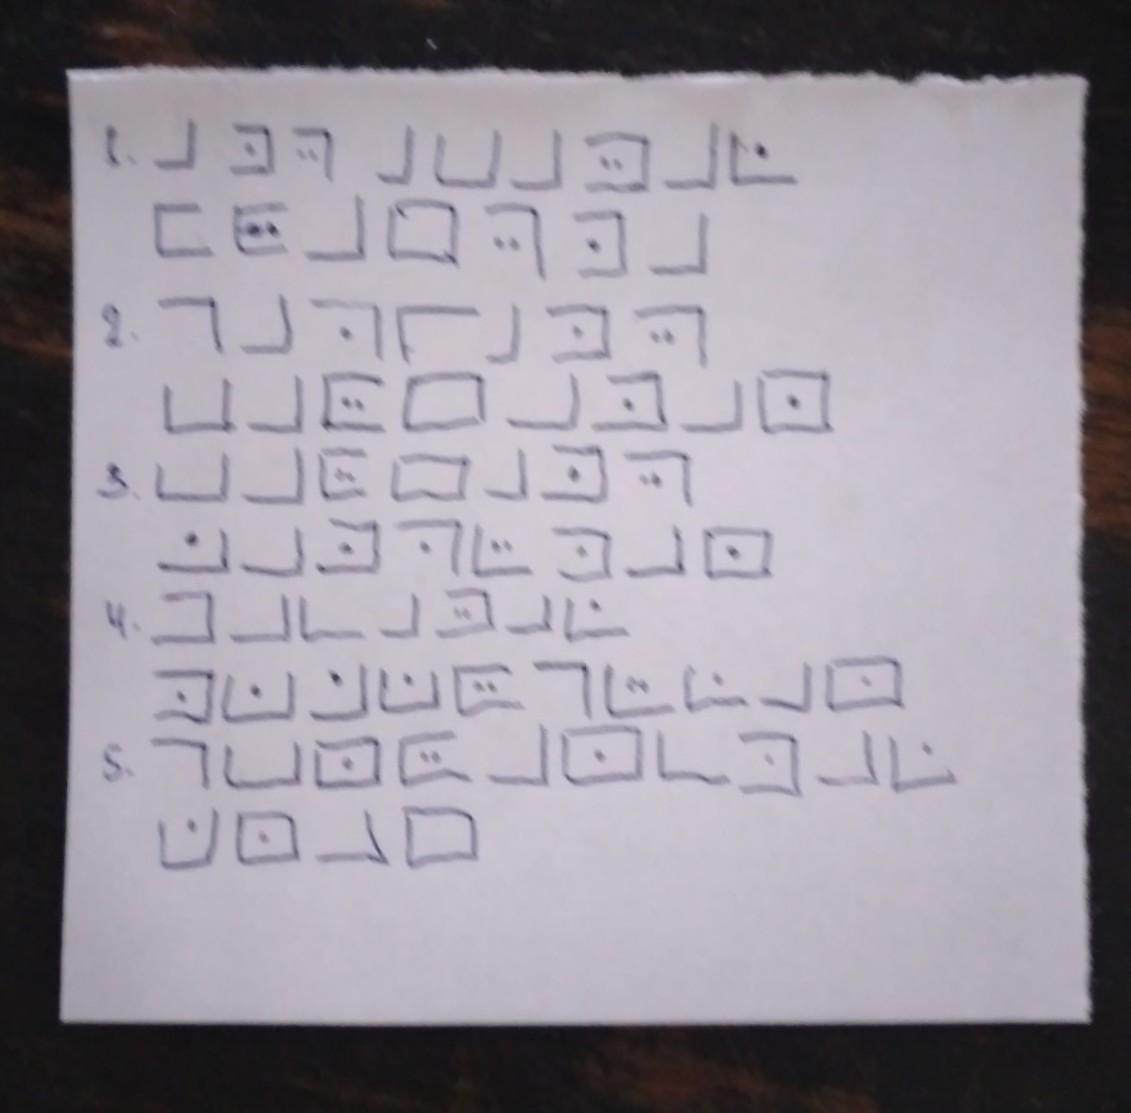 1. ┘ ⊐· ┐·· ┘ ⊔ ┘ ⊐·· ┘ └·
⊏ ⊏·· ┘ □ ┐·· ⊐· ┘
2. ┐ ┘ ┐· ┌ ┘ ⊐· ┐··
⊔ ┘ ⊏·· □ ┘ ⊐· ┘ ⊡
3. ⊔ ┘ ⊏·· □ ┘ ⊐· ┐··
┘· ┘ ⊐· ┐· └·· ⊐· ┘ ⊡
4. ⊐ ┘ └ ┘ ⊐·· ┘ └·
⊐· ⊔· ┘· ⊔· ⊏·· ┐ └·· └· ┘ ⊡
5. ┐ ⊔ ⊡ ⊏·· ┘ ⊡ └ ⊐· ┘ └·
⊔· ⊡ ┘ □